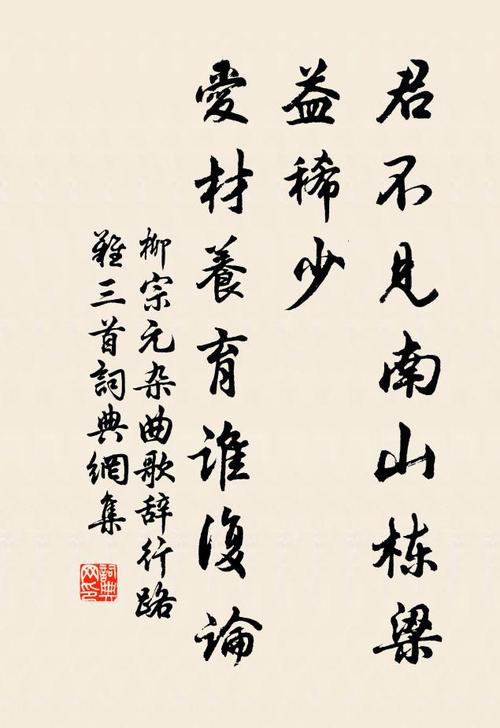 君不见南山栋梁
益稀少
愛材養育谁復論
柳宗元杂曲歌辞行路
难三首詞典網集
詞典网印